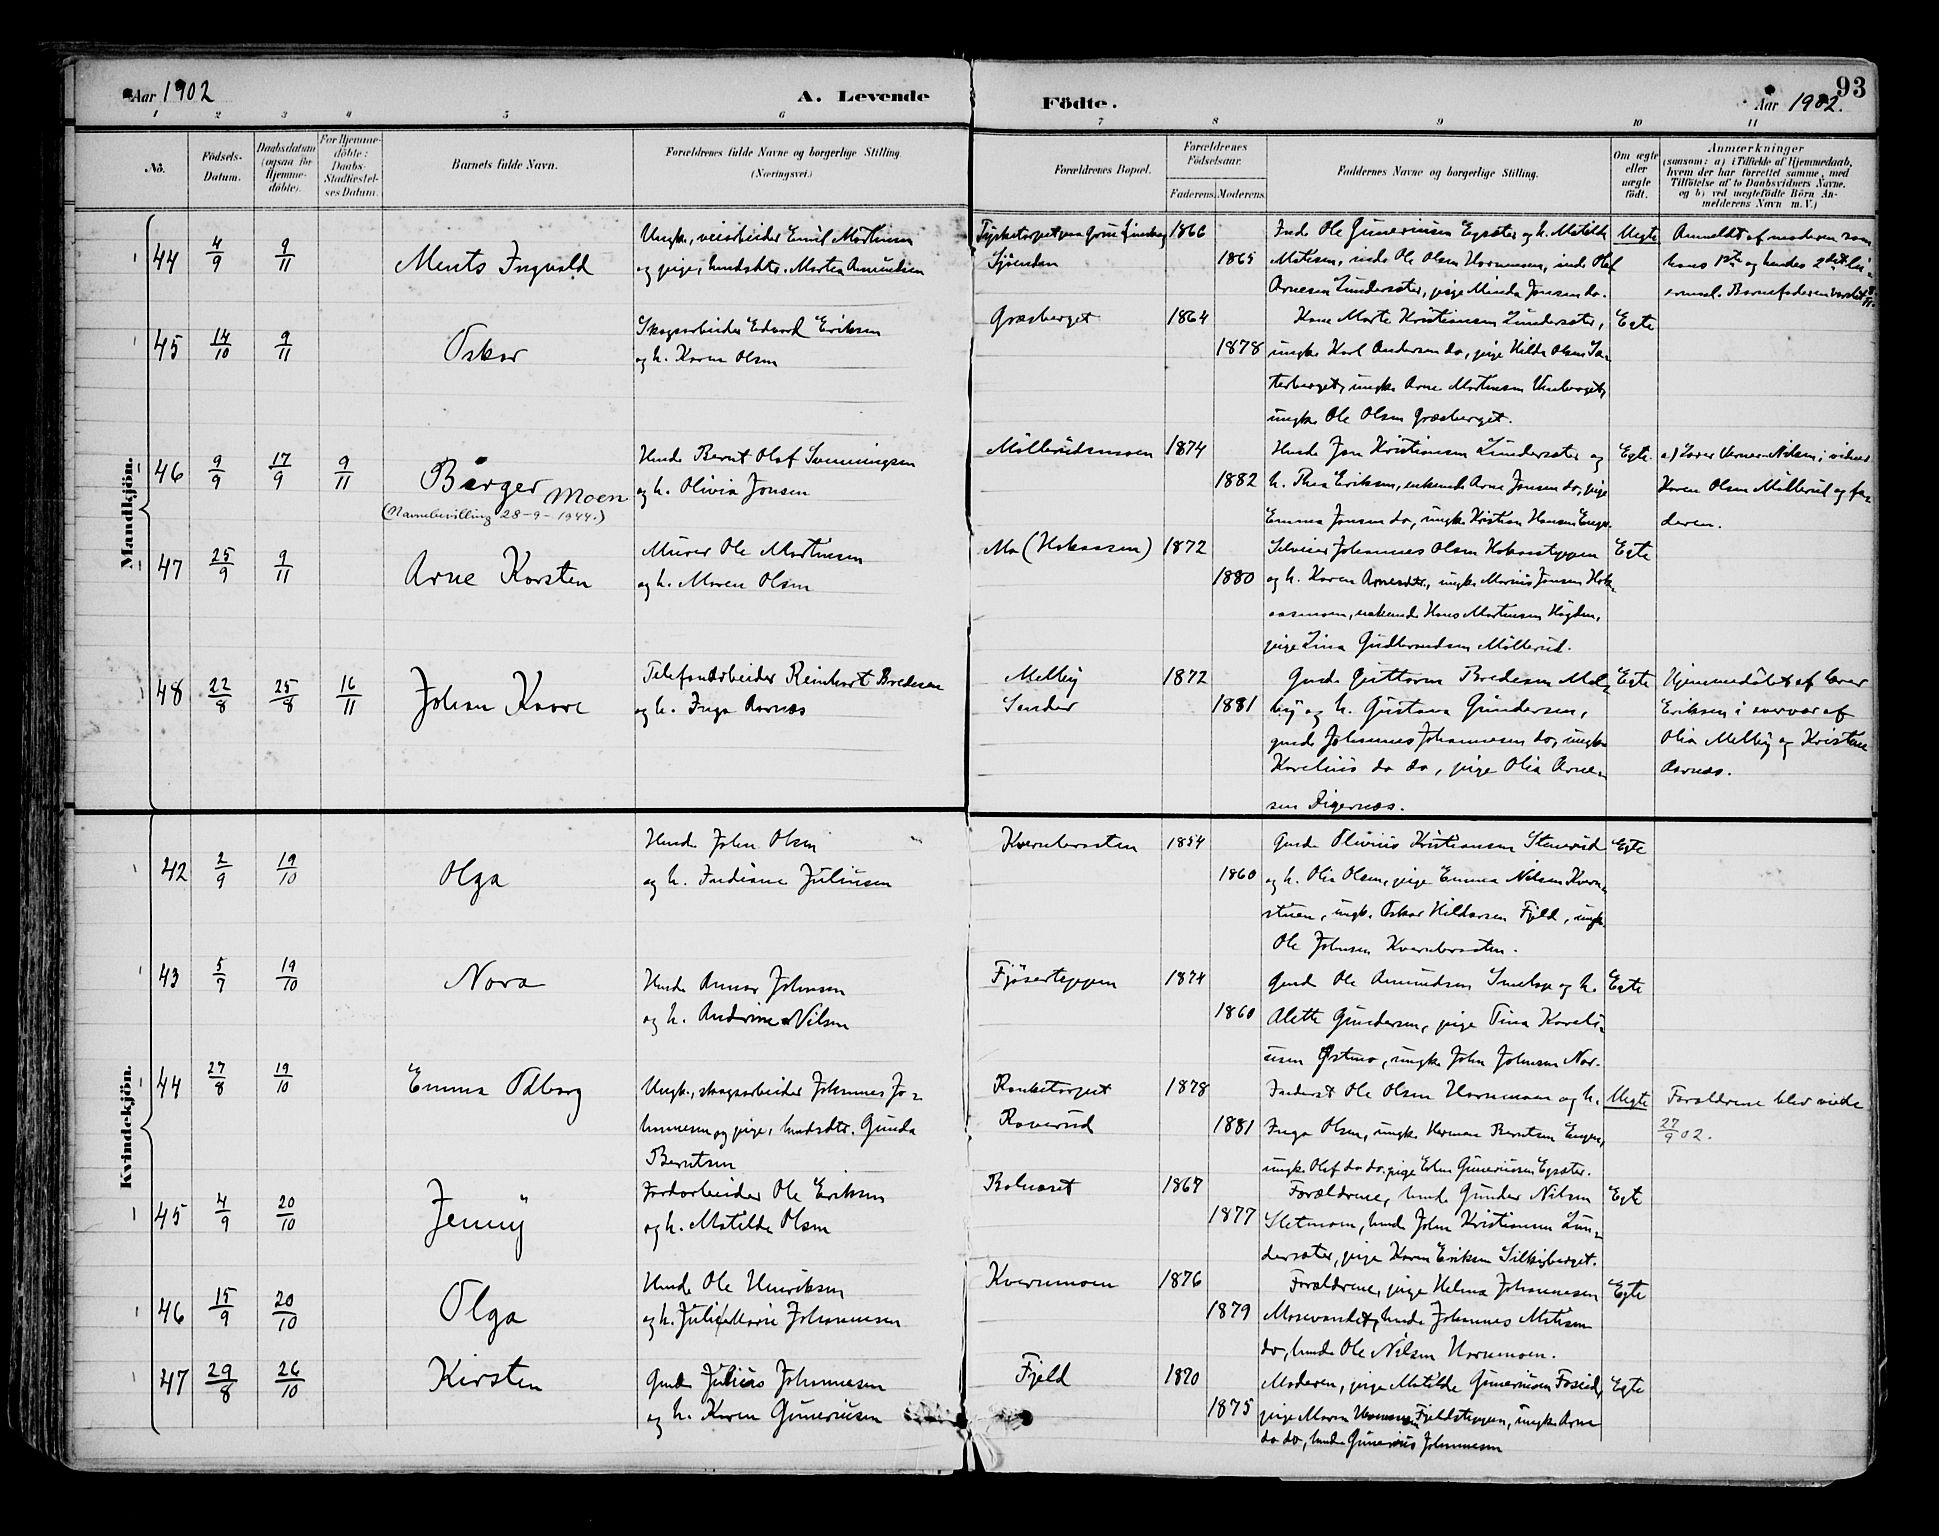 Aar 1902 A. Levende Födte. Aar 1902. 93
1 2 3 4 5 6 7 8 9 10 11
No. Födsels-Datum. Daabsdatum (ogsaa för Hjemmedöbte). For Hjemmedöbte: Daabs-Stadfæstelses Datum. Barnets fulde Navn. Forældrenes fulde Navne og borgerlige Stilling. (Næringsvei.) Forældrenes Bopæl. Forældrenes Födselsaar. Faderens Moderens Faddernes Navne og borgerlige Stilling. Om ægte eller uægte födt. Anmærkninger (saasom: a) i Tilfælde af Hjemmedaab, hvem der har forrettet samme, med Tilföielse af to Daabsvidners Navne, og b) ved uægtefödte Börn Anmelderens Navn m. V.)
Mandkjön.
44 4/9 9/11 Ments Ingvald
Ungk., veiarbeider Emil Martinsen
og pige, husdsdtr. Marten Amundsen
Sjöenden
1866
1865
Inds Ole Gunerinsen Egsæter og h. Matilde
Matisen, inds Ole Olsen Hornmoen, inds Olof
Arnesen Lundersæter, pige Minda Jonsen do.
Uegte
Anmeldt af moderen som
hans 1ste og hendes 2det lei-
ermaal. Barnefaderen
45 14/10 9/11 Oskar
Skogsarbeider Edvard Eriksen
og h. Karen Olsen
Græsberget
1864
1878
Kone Marte Kristiansen Lundersæter,
ungk. Karl Andersen do, pige Hilda Olsen Sæ-
terberget, ungk. Arne Martinsen
ungk. Ole Olsen Græsberget.
Egte
46 9/9 17/9 9/11 Birger Moen
(Navnebevilling 28-9-1944.)
Husmd. Bernt Olaf Svenningsen
og h. Olivia Jonsen
Möllerudsmoen
1874
1882
Husmd Jon Kristiansen Lundersæter og
h. Thea Eriksen, enkemd. Arne Jonsen do, pige
Emma Jonsen do, ungk. Kristian Hansen
Egte
a) Lærer Verner Nilsen; vidner
Karen Olsen Möllerud og fa-
deren.
47 25/9 9/11 Arne Karsten
Murer Ole Martinsen
og h. Maren Olsen
Mo (Hokaasen)
1872
1880
Selveier Johannes Olsen Hokaasteppen
og h. Karen Arnesdtr., ungk. Marius Jonsen Hok-
aasmoen, enkemd Hans Martinsen Högden,
pige Lina Gudbrandsen Möllerud.
Egte
48 22/8 25/8 16/11 Johan Kaare
Telefonarbeider Reinhart Bredesen
og h. Inga Aarnæs
Melby
Sander
1872
1881
Gmd. Guttorm Bredesen Mel-
by og h. Gustava Gundersen,
gmd. Johannes Johannesen do, ungk.
Karelius do do, pige Olia Arne-
sen Digernæs.
Egte
Hjemmedöbt af lærer
Eriksen i overvær af
Olia Melby og Kristian
Aarnæs.
Kvindekjön.
42 2/9 19/10 Olga
Husmd John Olsen
og h. Indiane Juliusen
Kvernbraaten
1854
1860
Gmd. Olivius Kristiansen Stenerud
og h. Olia Olsen, pige Emma Nilsen Kvern-
stuen, ungk. Oskar Hildorsen Fjeld, ungk.
Ole Johnsen Kvernbraaten.
Egte
43 5/7 19/10 Nora
Husmd. Annar Johnsen
og h. Andrine Nilsen
Fjöserteppen
1874
1860
Gmd Ole Amundsen og h.
Alette Gundersen, pige Tina Kareli-
usen Östmo, ungk. John Johnsen Nor.
Egte
44 27/8 19/10 Emma Odborg
Ungk., skogsarbeider Johannes Jo-
hannesen og pige, husdsdtr. Gunda
Berntsen
Ronketorpet
Roverud
1878
1881
Inderst Ole Olsen Hornmoen og h.
Inga Olsen, ungk. Herman Berntsen Engen,
ungk. Olof do do, pige Edin Gunerinsen Egsæter.
Uegte
Forældrene blev viede
27/9 02.
45 4/9 20/10 Jenny
Jordarbeider Ole Eriksen
og h. Matilde Olsen
1867
1877
Forældrene, husmd Gunder Nilsen
Sletmoen, husmd John Kristiansen Lun-
dersæter, pige Karen Eriksen Silkeberget.
Egte
46 15/9 20/10 Olga
Husmd Ole Henriksen
og h. Julie Marie Johannesen
Kvernmoen
1876
1879
Forældrene, pige Helma Johannesen
Mosevandet, husmd Johannes Matisen
do, husmd Ole Nilsen Hornmoen.
Egte
47 29/8 26/10 Kirsten
Gmd. Julius Johannesen
og h. Karen Gunerinsen
Fjeld
1870
1875
Moderen, pige Matilde Gunerinsen Foseid,
pige Maren Fjeldsteppen, ungk. Arne
do do, husmd Gunerius Johannesen
Egte